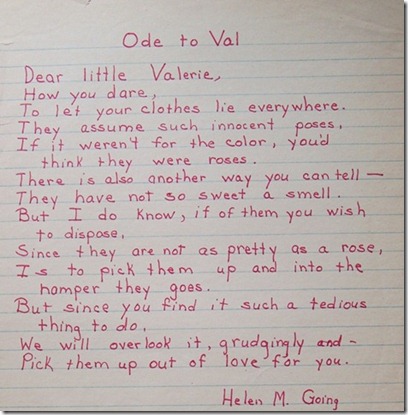 Ode to Val
Dear little Valerie,
How you dare,
To let your clothes lie everywhere.
They assume such innocent poses,
If it weren't for the color, you'd
think they were roses.
There is also another way you can tell —
They have not so sweet a smell.
But I do know, if of them you wish
to dispose,
Since they are not as pretty as a rose,
Is to pick them up and into the
hamper they goes.
But since you find it such a tedious
thing to do,
We will overlook it, grudgingly and -
Pick them up out of love for you.
Helen M. Going